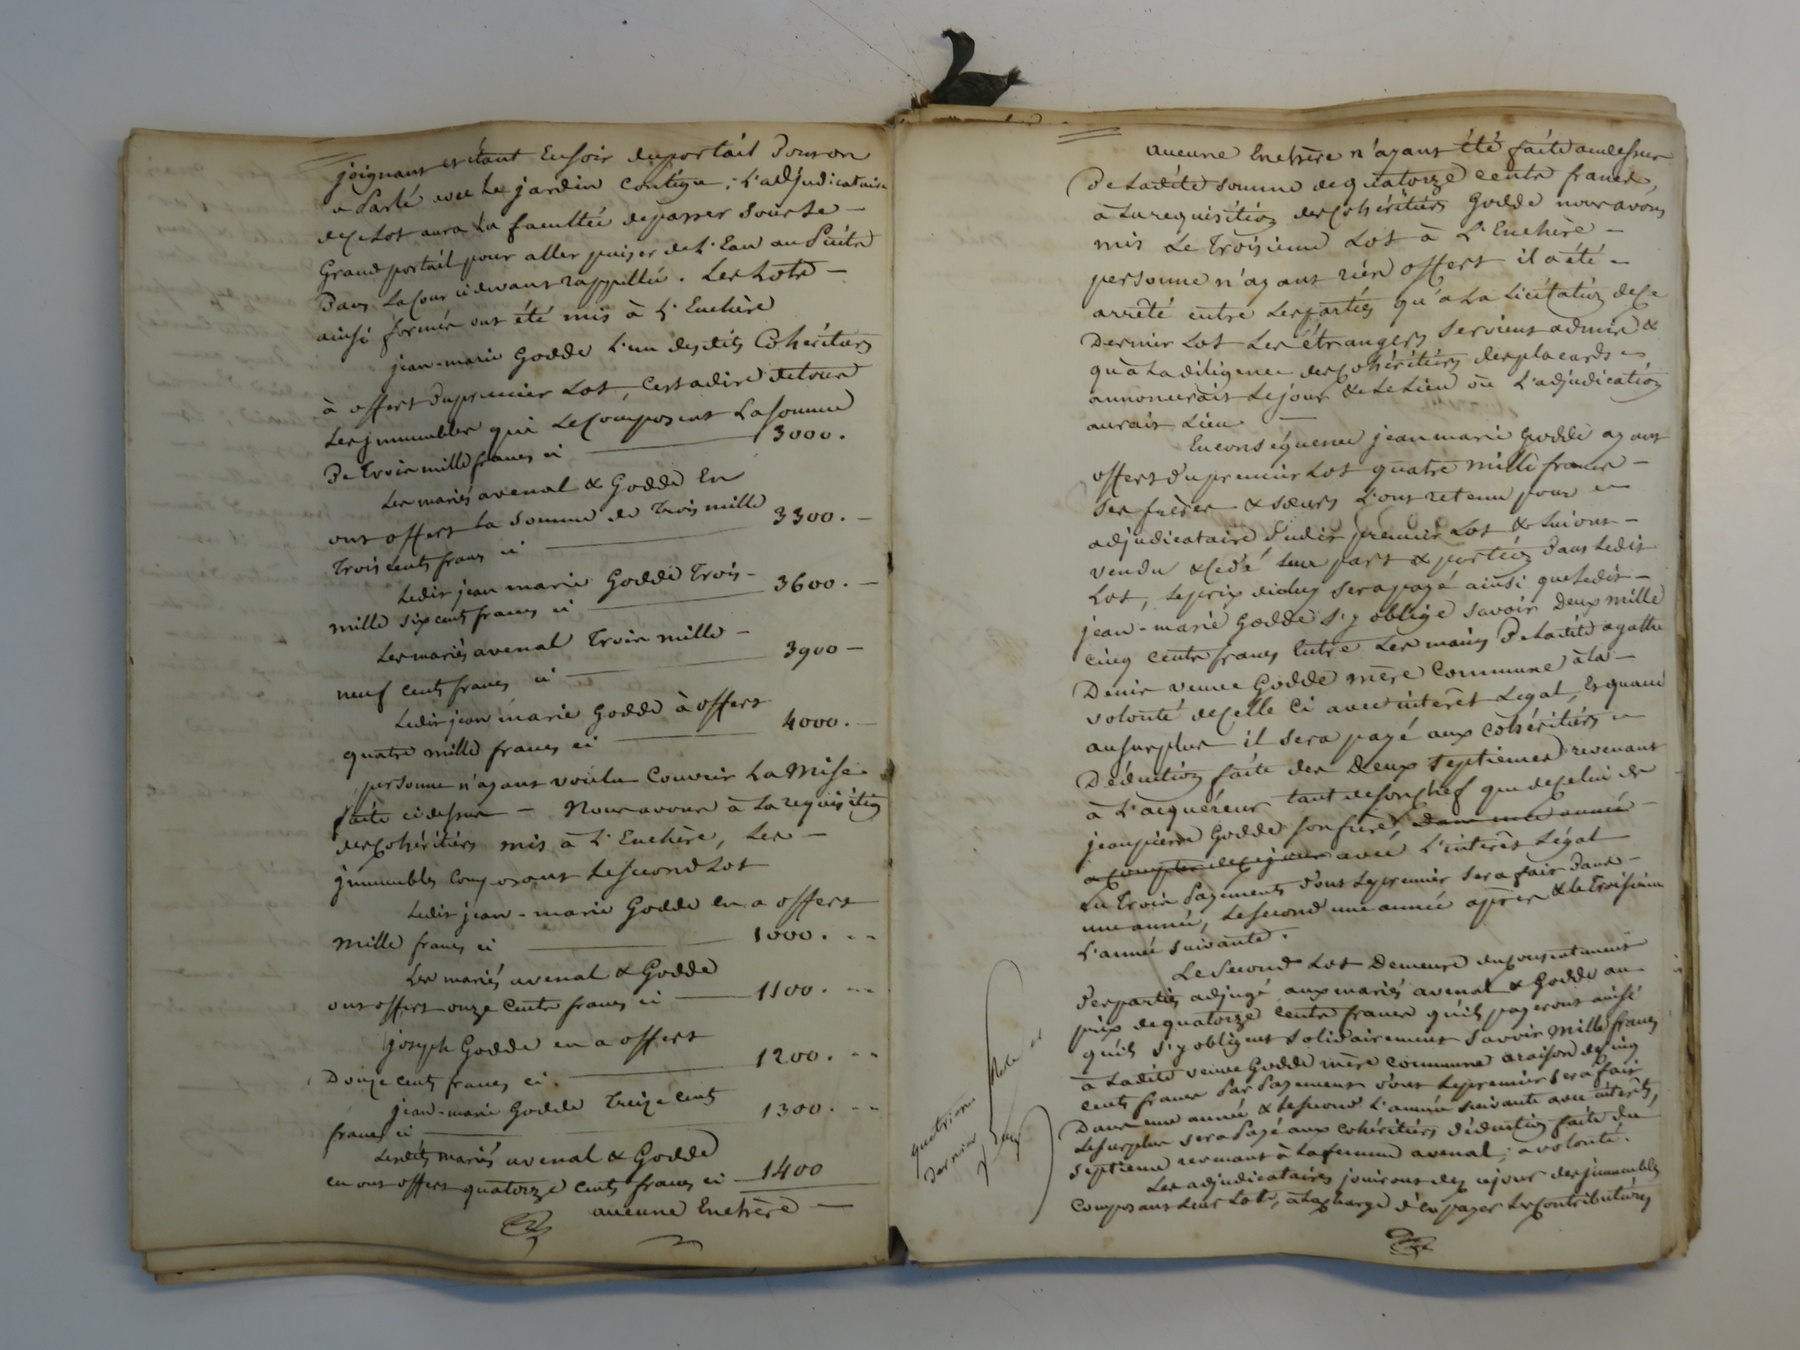 joignant et étant Ensoir du portail Dont on
a Parlé avec Le jardin Contigu; L'adjudicataire
de ce Lot aura La facultée de passer Sous Le
Grand portail pour aller puiser de L'Eau au Puits
Dans La Cour ci devant rappellée. Les Lots
ainsi formés ont été mis à L'Enchère
jean-marie Godde L'un desdits Cohéritiers
à offert du premier Lot, C'est a dire de tous
Les jmmeubles qui Le Composent La somme
De trois mille francs ci 3000.
Les mariés avenal & Godde En
ont offert La Somme de Trois mille
trois cents francs ci 3300.
Ledit jean marie Godde Trois
mille six cent francs ci 3600.
Les mariés avenal Trois mille
neuf cents francs ci 3900
Ledit jean marie Godde à offert
quatre mille francs ci 4000.
personne n'ayant voulu Couvrir La Mise
faite ci dessus Nous avons à La requisition
des Cohéritiers mis à L'Enchère, Les
jmmeubles Composant Le Second Lot
Ledit jean-marie Godde en a offert
Mille francs ci 1000.
Les mariés avenal & Godde
ont offert onze Cents francs ci 1100.
joseph Godde en a offert
Douze cents francs ci 1200.
jean-marie Godde Treize cents
francs ci 1300.
Lesdits mariés avenal & Godde
en ont offert quatorze Cents francs ci 1400
aucune Enchère
aucune Enchère n'ayant été faite au dessus
De Ladite somme de quatorze cents francs,
à La requisition des Cohéritiers Godde nous avons
mis Le Troisieme Lot à L'Enchère
personne n'ayant rien offert il a été
arrêté entre Les parties qu'a La Licitation de Ce
Dernier Lot Les étrangers Seroient admis &
qu'à La diligence des Cohéritiers des placards
annonceraient Le jour & Le Lieu où L'adjudication
aurait Lieu.
En conséquence jean marie Godde ayant
offert du premier Lot quatre mille francs
Ses frères & sœurs L'ont retenu pour
adjudicataire dudit premier Lot & Lui ont
vendu & Cédé Leur part & portion Dans Ledit
Lot, Le prix d'icelui sera payé ainsi que Ledit
jean-marie Godde s'y oblige Savoir Deux mille
cinq cents francs Entre Les mains De Ladite agathe
Denis veuve Godde mère Commune à La
volonté de Celle Ci avec interêt Legal, Et quand
au surplus il sera payé aux Cohéritiers
Déduction faite des Deux Septiemes revenant
à L'acquéreur tant de son Chef que de Celui de
jean pierre Godde son frère, Dans une année
a Compter de ce jour avec L'interêt Légal
En Trois Payements dont Le premier Sera fait Dans
une année, Le Second une année après & Le Troisieme
L'année Suivante.
Le Second Lot Demeure du Consentement
Des parties adjugé aux mariés avenal & Godde au
prix de quatorze cents francs qu'ils payeront ainsi
qu'ils s'y obligent solidairement Savoir Mille francs
à Ladite veuve Godde mère commune a raison de Cinq
cents francs Par Payement dont Le premier sera fait
Dans une année & Le Second L'année suivante avec interêts,
Le surplus sera Payé aux Cohéritiers Déduction faite du
Septieme revenant à La femme avenal, a volonté.
Les adjudicataires jouiront dès ce jour des jmmeubles
Composant Leur Lot, à La Charge d'en payer Les Contributions
dernier